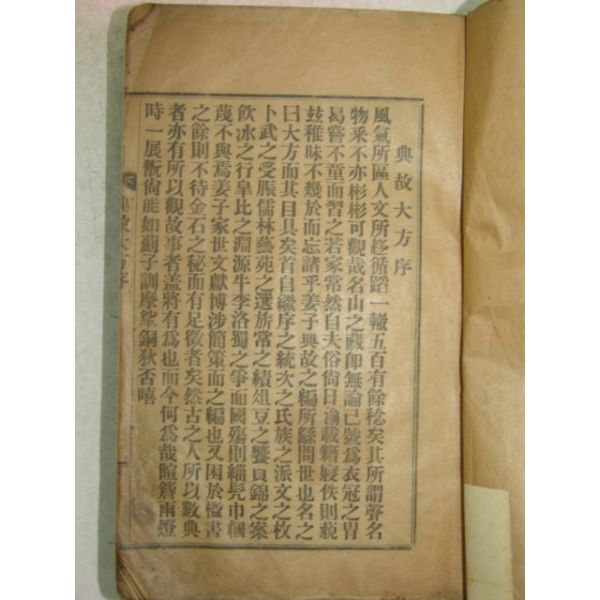 典故大方序
風氣所區人文所移循蹈一轍五百有餘稔矣其所謂聲名
物采不亦彬彬可觀哉名山之藏卽無論已號爲衣冠之胄
曷嘗不童而習之若家常然自夫俗尙日渝載籍寢佚則藐
玆稚昧不幾於而忘諸乎姜子典故之編所繇問世也名之
曰大方而其目具矣首自繼序之統次之氏族之派文之枚
卜武之受脤儒林藝苑之選旂常之績俎豆之饗貝錦之案
飮冰之行皐比之淵源牛李洛蜀之爭而國殤則緇髡巾幗
蔑不與焉姜子家世文獻博涉簡策而之編也又困於檻書
之餘則不待金石之秘而有足徵者矣然古之人所以數典
者亦有所以觀故事者盖將有爲也而今何爲哉暄簷雨燈
時一展㪅尙能如薊子訓摩挲銅狄否嘻
典故大方序